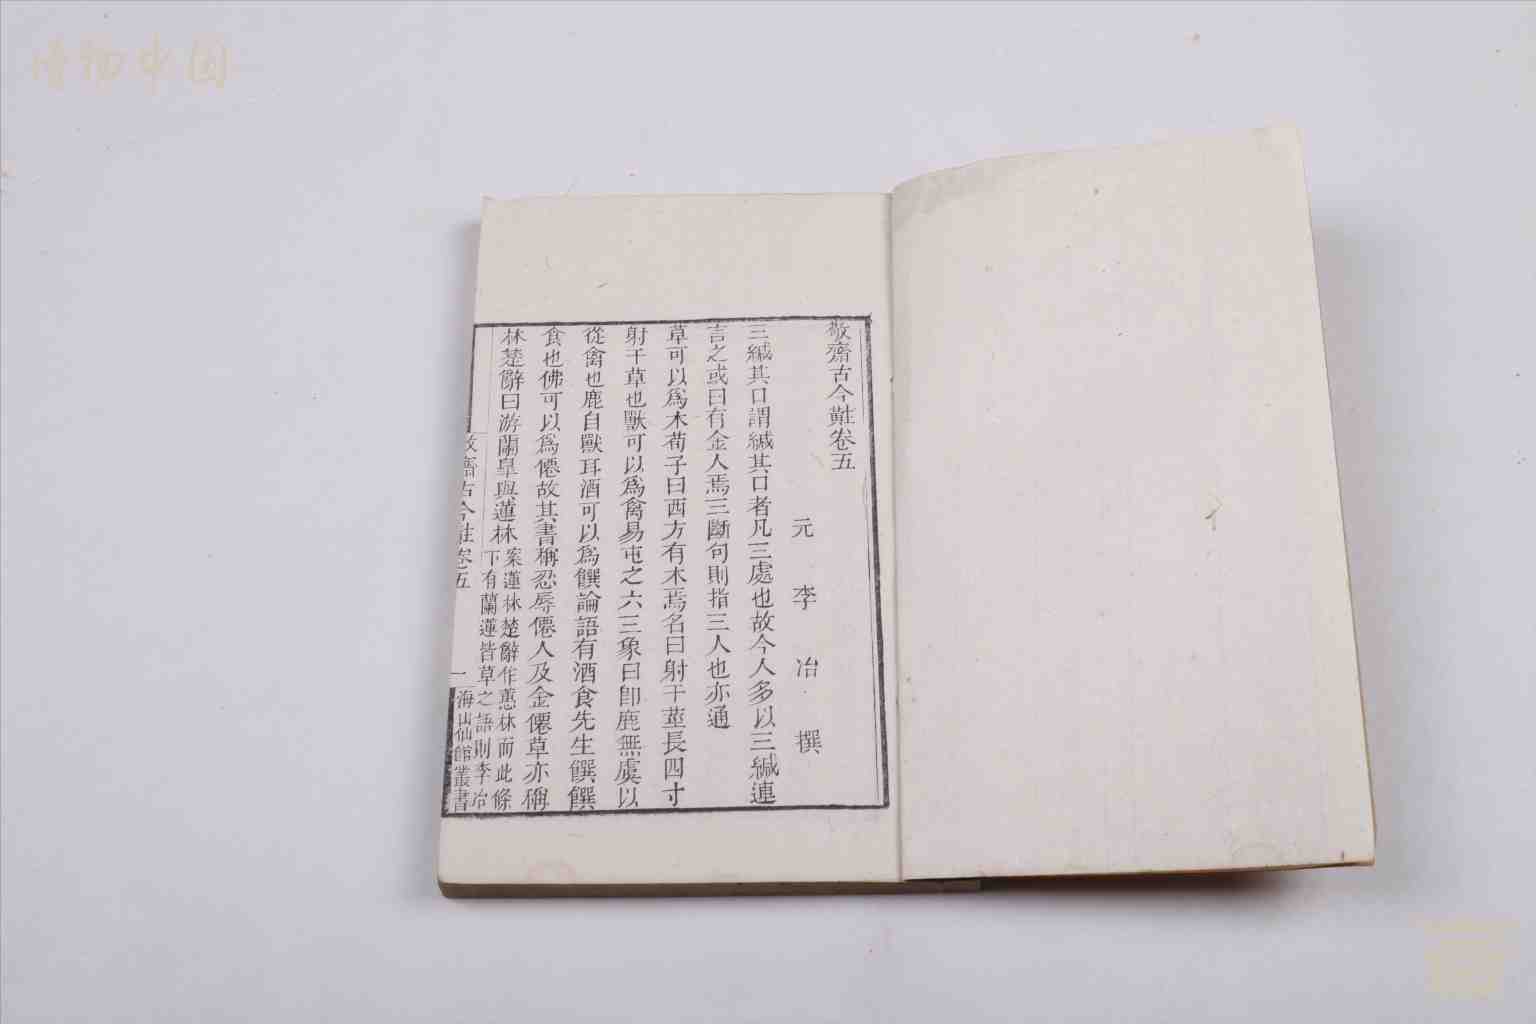 敬齋古今黈卷五
元 李 冶 撰
三緘其口謂緘其口者凡三處也故今人多以三緘連
言之或曰有金人焉三斷句則指三人也亦通
草可以爲木荀子曰西方有木焉名曰射干莖長四寸
射干草也獸可以爲禽易屯之六三象曰卽鹿無虞以
從禽也鹿自獸耳酒可以爲饌論語有酒食先生饌饌
食也佛可以爲僊故其書稱忍辱僊人及金僊草亦稱
林楚辭曰游蘭皐與蓮林案蓮林楚辭作蕙林而此條
下有蘭蓮皆草之語則李冶
敬齋古今黈卷五
一
海山仙館叢書
博物中国